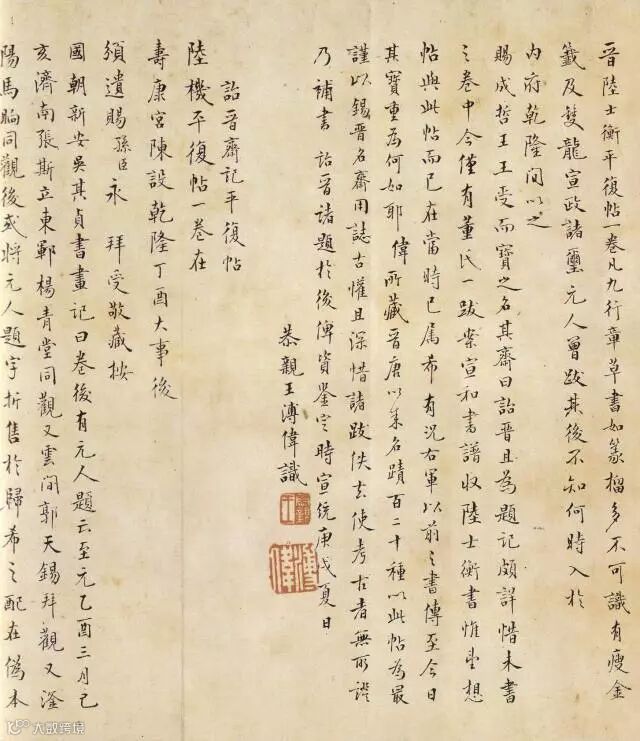 晉陸士衡平復帖一卷凡九行章草書如篆籀多不可識有瘦金
籤及雙龍宣政諸璽元人曾跋其後不知何時入於
內府乾隆間以之
賜成哲王王受而寶之名其齋曰詒晉且為題記頗詳惜未書
之卷中今僅有董氏一跋案宣和書譜收陸士衡書惟望想
帖與此帖而已在當時已属希有況右軍以前之書傳至今日
其寶重為何如耶偉所藏晉唐以來名蹟百二十種以此帖為最
謹以錫晉名齋用誌古懽且深惜諸跋佚去使考古者無所證
乃補書詒晉諸題於後俾資鑒定時宣統庚戌夏日
恭親王溥偉識
詒晉齋記平復帖
陸機平復帖一卷在
壽康宮陳設乾隆丁酉大事後
頒遺賜孫臣永 拜受敬藏按
國朝新安吳其貞書畫記曰卷後有元人題云至元乙酉三月己
亥濟南張斯立東鄆楊青堂同觀又雲間郭天錫拜觀又滏
陽馬昫同觀後或將元人題字折售於歸希之配在偽本
大数跨境